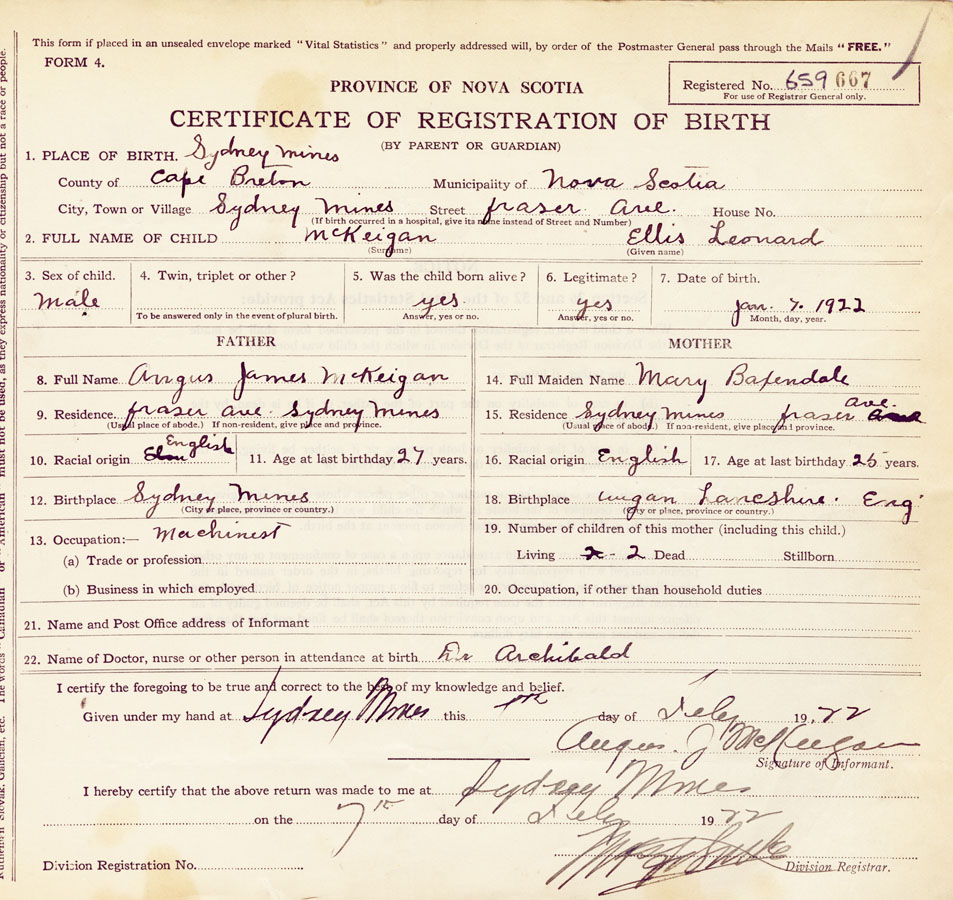 This form if placed in an unsealed envelope marked "Vital Statistics" and properly addressed will, by order of the Postmaster General pass through the Mails "FREE."
FORM 4.
Registered No. 659 667
For use of Registrar General only.
PROVINCE OF NOVA SCOTIA
CERTIFICATE OF REGISTRATION OF BIRTH
(BY PARENT OR GUARDIAN)
1. PLACE OF BIRTH. Sydney Mines
County of Cape Breton Municipality of Nova Scotia
City, Town or Village Sydney Mines Street fraser Ave. House No.
(If birth occurred in a hospital, give its name instead of Street and Number)
2. FULL NAME OF CHILD McKeigan Ellis Leonard
(Surname) (Given name)
3. Sex of child. 4. Twin, triplet or other? 5. Was the child born alive? 6. Legitimate? 7. Date of birth.
Male yes. yes Jan. 7. 1922
To be answered only in the event of plural birth. Answer, yes or no. Answer, yes or no. Month, day, year.
FATHER MOTHER
8. Full Name Angus James McKeigan 14. Full Maiden Name Mary Baxendale
9. Residence. fraser ave. Sydney Mines 15. Residence Sydney Mines fraser Ave.
(Usual place of abode.) If non-resident, give place and province. (Usual place of abode.) If non-resident, give place and province.
10. Racial origin English 11. Age at last birthday 27 years. 16. Racial origin English 17. Age at last birthday 25 years.
12. Birthplace Sydney Mines 18. Birthplace Lancshire. Eng
(City or place, province or country.) (City or place, province or country.)
13. Occupation:— Machinest 19. Number of children of this mother (including this child.)
(a) Trade or profession Living 2 Dead Stillborn
(b) Business in which employed 20. Occupation, if other than household duties
21. Name and Post Office address of Informant
22. Name of Doctor, nurse or other person in attendance at birth Dr Archibald
I certify the foregoing to be true and correct to the best of my knowledge and belief.
Given under my hand at Sydney Mines this day of Feby 1922
Angus. J McKeigan
Signature of Informant.
I hereby certify that the above return was made to me at Sydney Mines
on the 7th day of Feby 1922
Division Registration No. Division Registrar.